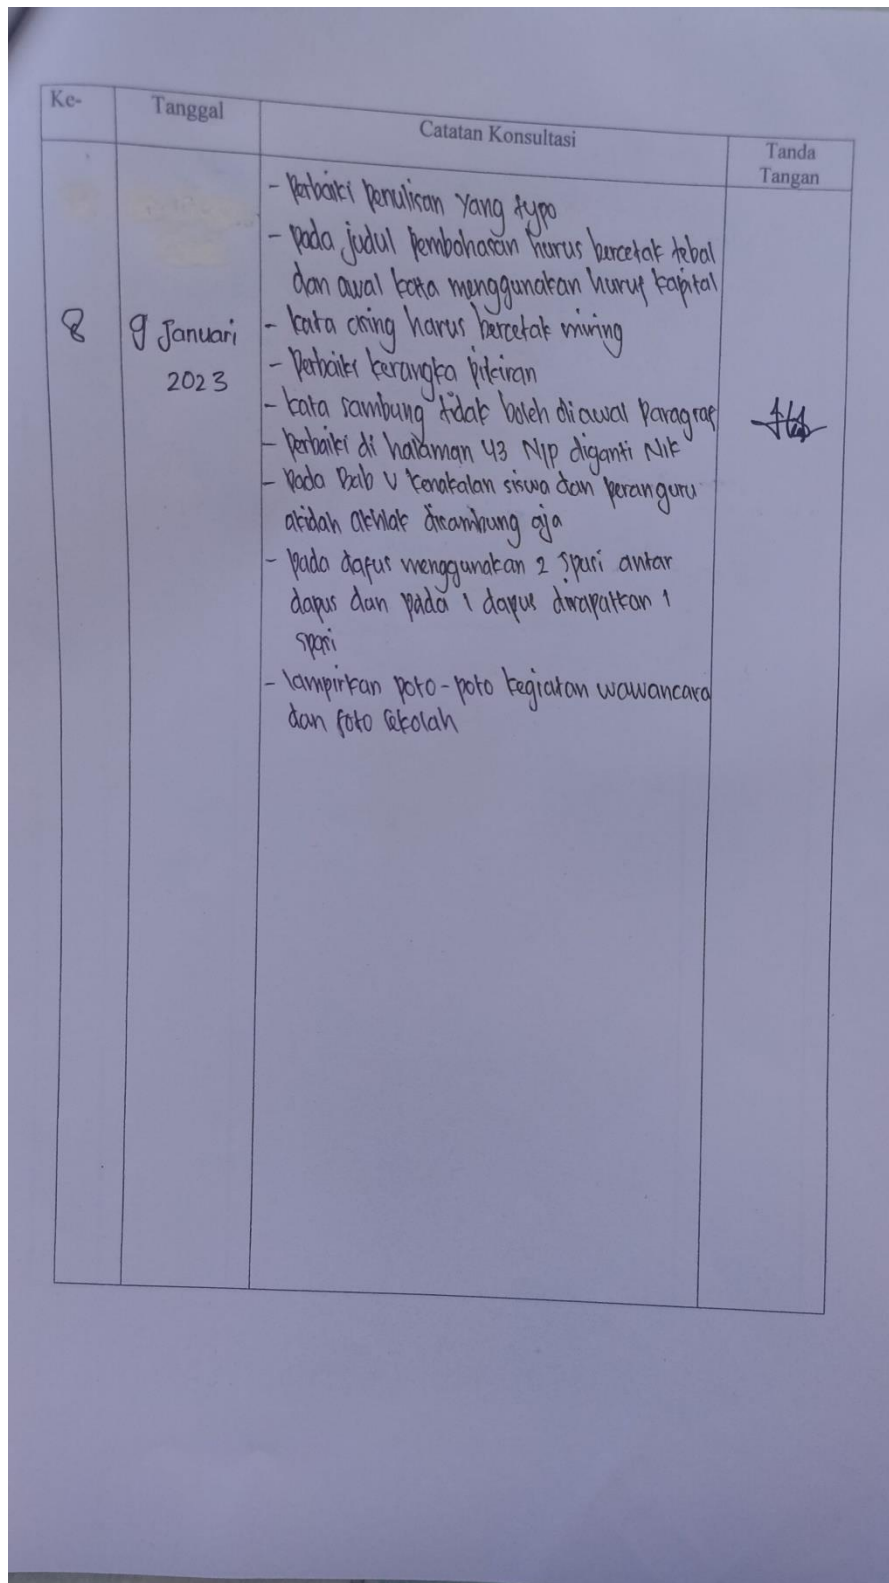 Ke-
Tanggal
Catatan Konsultasi
Tanda
Tangan
8
9 Januari
2023
- Perbaiki penulisan yang typo
- pada judul pembahasan harus bercetak tebal
dan awal kata menggunakan huruf kapital
- kata asing harus bercetak miring
- Perbaiki kerangka pikiran
- kata sambung tidak boleh diawal Paragraf
- perbaiki di halaman 43 NIP diganti NIK
- pada Bab V kenakalan siswa dan peran guru
akidah akhlak disambung aja
- pada dafus menggunakan 2 spasi antar
dapus dan pada 1 dapus dirapatkan 1
spasi
- lampirkan poto-poto kegiatan wawancara
dan foto sekolah